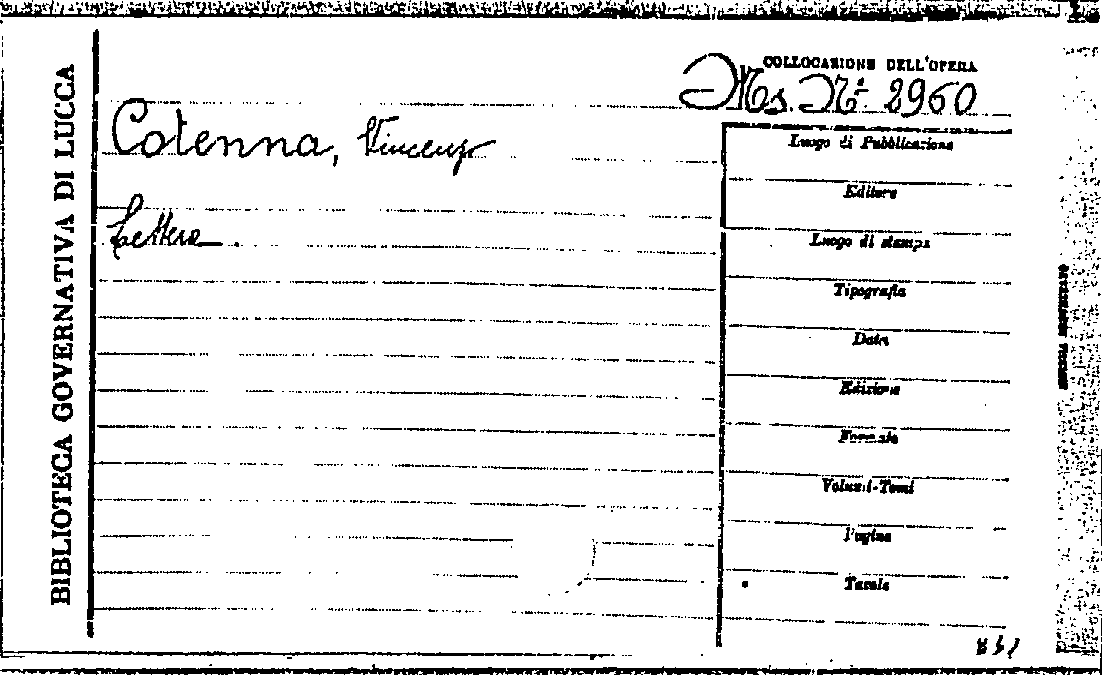 BIBLIOTECA GOVERNATIVA DI LUCCA
COLLOCAZIONE DELL'OPERA
Ms. N.º 2960
Cotenna, Vincenzo
Lettera.
Luogo di Pubblicazione
Editore
Luogo di stampa
Tipografia
Data
Edizione
Formato
Volumi-Tomi
Pagine
Tavole